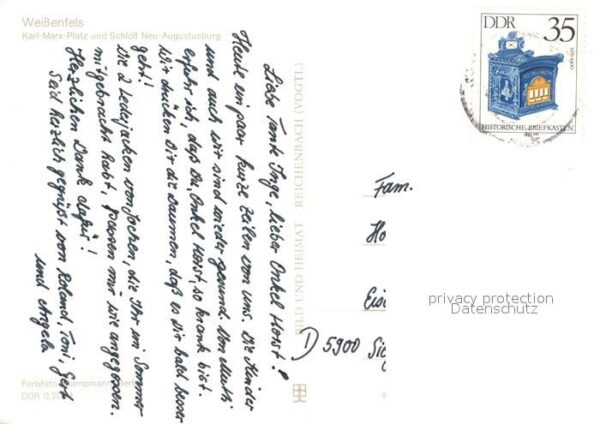 Weißenfels
Karl-Marx-Platz und Schloß Neu-Augustusburg
Liebe Tante Inge, lieber Onkel Horst!
Heute ein paar kurze Zeilen von uns. Die Kinder
und auch wir sind wieder gesund. Von Mutti
erfuhr ich, daß Du, Onkel Horst, so krank bist.
Wir drücken Dir die Daumen, daß es Dir bald besser
geht!
Die 2 Lederjacken von Jochen, die Ihr im Sommer
mitgebracht habt, passen mir wie angegossen.
Herzlichen Dank dafür!
Seid herzlich gegrüßt von Roland, Toni, Gert
und Angela
BILD UND HEIMAT · REICHENBACH (VOGTL)
Farbfoto:
DDR
DDR 35
1860
HISTORISCHE BRIEFKÄSTEN
Fam.
Ho
Eise
D 5900 Sieg
privacy protection
Datenschutz